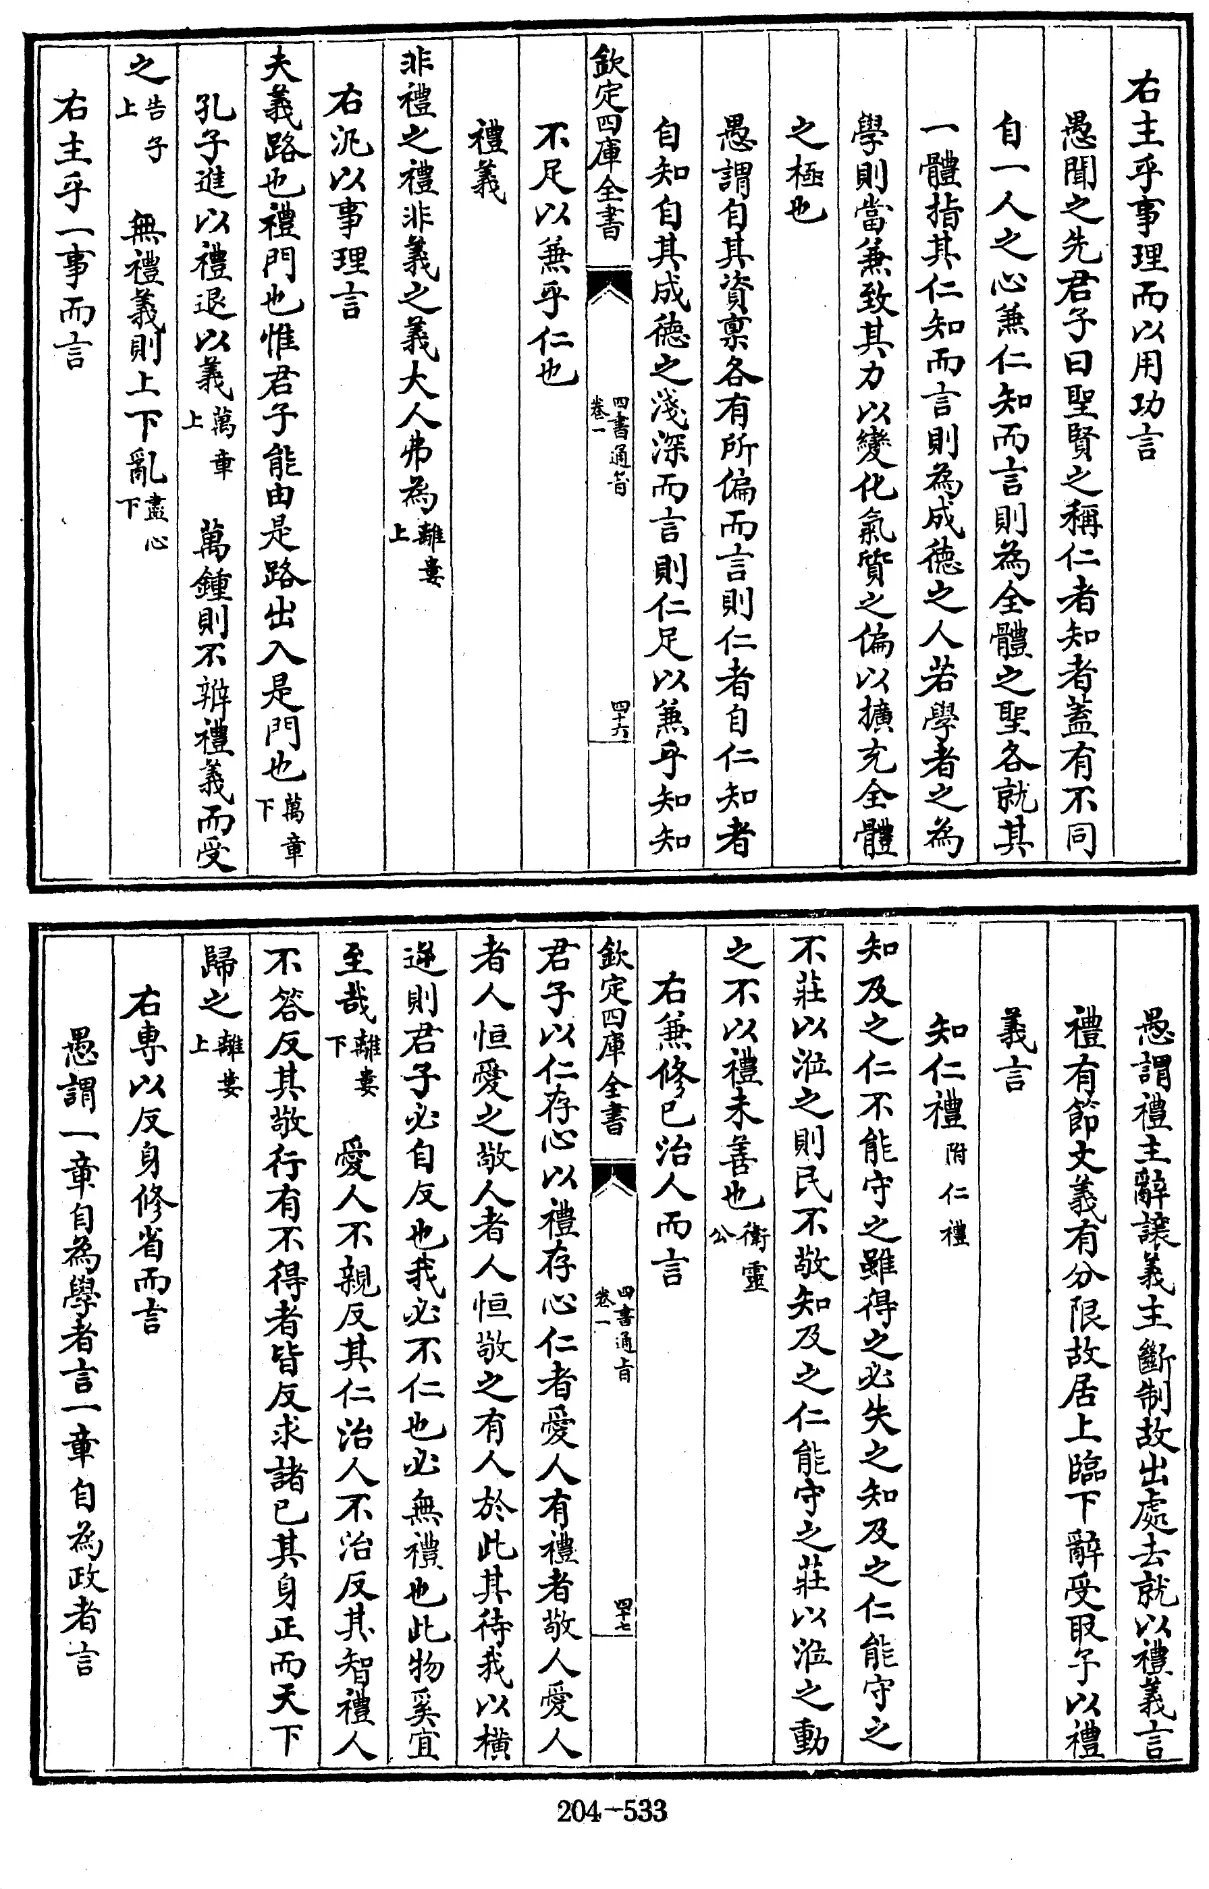 右主乎事理而以用功言
愚聞之先君子曰聖賢之稱仁者知者蓋有不同
自一人之心兼仁知而言則為全體之聖各就其
一體指其仁知而言則為成德之人若學者之為
學則當兼致其力以變化氣質之偏以擴充全體
之極也
愚謂自其資稟各有所偏而言則仁者自仁知者
自知自其成德之淺深而言則仁足以兼乎知知
欽定四庫全書
四書通旨
卷一
四十六
不足以兼乎仁也
禮義
非禮之禮非義之義大人弗為離婁上
右汎以事理言
夫義路也禮門也惟君子能由是路出入是門也萬章下
孔子進以禮退以義萬章上 萬鍾則不辨禮義而受
之告子上 無禮義則上下亂盡心下
右主乎一事而言
愚謂禮主辭讓義主斷制故出處去就以禮義言
禮有節文義有分限故居上臨下辭受取予以禮
義言
知仁禮附仁禮
知及之仁不能守之雖得之必失之知及之仁能守之
不莊以涖之則民不敬知及之仁能守之莊以涖之動
之不以禮未善也衛靈公
右兼修己治人而言
欽定四庫全書
四書通旨
卷一
四十七
君子以仁存心以禮存心仁者愛人有禮者敬人愛人
者人恒愛之敬人者人恒敬之有人於此其待我以橫
逆則君子必自反也我必不仁也必無禮也此物奚宜
至哉離婁下 愛人不親反其仁治人不治反其智禮人
不答反其敬行有不得者皆反求諸己其身正而天下
歸之離婁上
右專以反身修省而言
愚謂一章自為學者言一章自為政者言
204-533